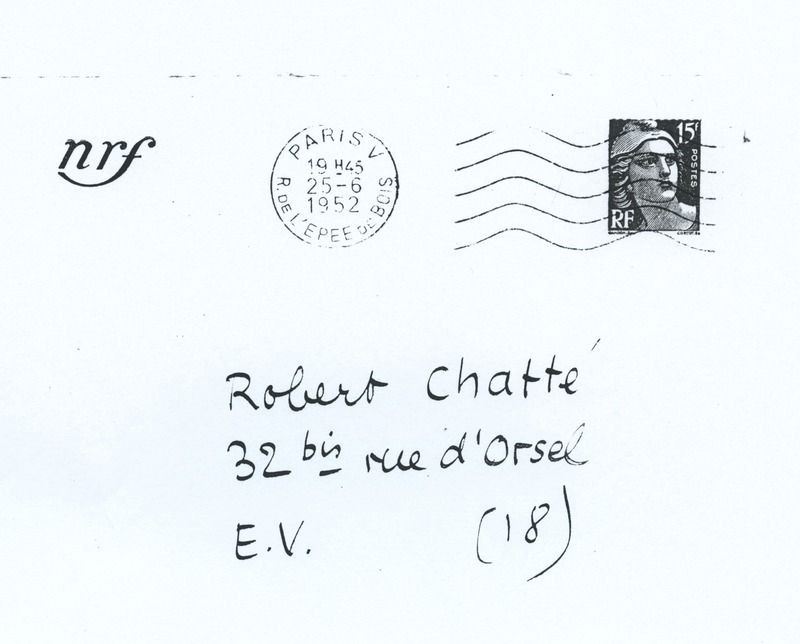 nrf
PARIS V
19 H45
25-6
1952
R. DE L'EPEE DE BOIS
15f
POSTES
RF
Robert Chatté
32 bis rue d'Orsel
E.V. (18)